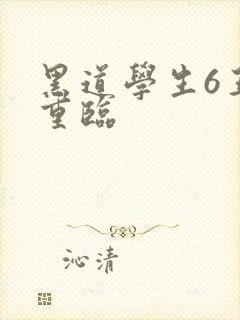 黑道學生6
重臨
沁清